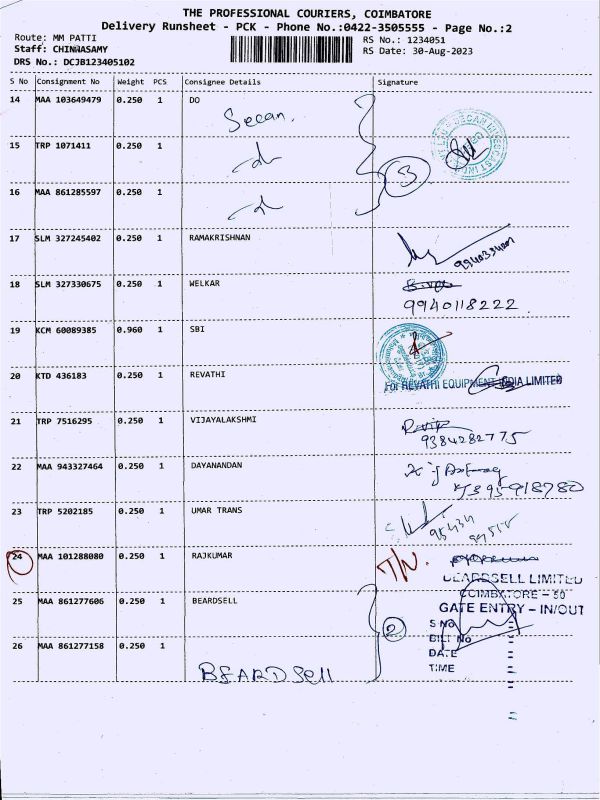 THE PROFESSIONAL COURIERS, COIMBATORE
Delivery Runsheet - PCK - Phone No.:0422-3505555 - Page No.:2
Route: MM PATTI
RS No.: 1234051
Staff: CHINNASAMY
RS Date: 30-Aug-2023
DRS No.: DCJB123405102
S No Consignment No Weight PCS Consignee Details Signature
14 MAA 103649479 0.250 1 DO
Secan.
15 TRP 1071411 0.250 1
3
16 MAA 861285597 0.250 1
17 SLM 327245402 0.250 1 RAMAKRISHNAN
18 SLM 327330675 0.250 1 WELKAR
9940118222
19 KCM 60089385 0.960 1 SBI
20 KTD 436183 0.250 1 REVATHI
For REVATHI EQUIPMENT INDIA LIMITED
21 TRP 7516295 0.250 1 VIJAYALAKSHMI
9384282775
22 MAA 943327464 0.250 1 DAYANANDAN
23 TRP 5202185 0.250 1 UMAR TRANS
24 MAA 101288080 0.250 1 RAJKUMAR
BEARDSELL LIMITED
COIMBATORE - 50
25 MAA 861277606 0.250 1 BEARDSELL
GATE ENTRY - IN/OUT
2
S No
BILL No
26 MAA 861277158 0.250 1
DATE
TIME
BEARDSell